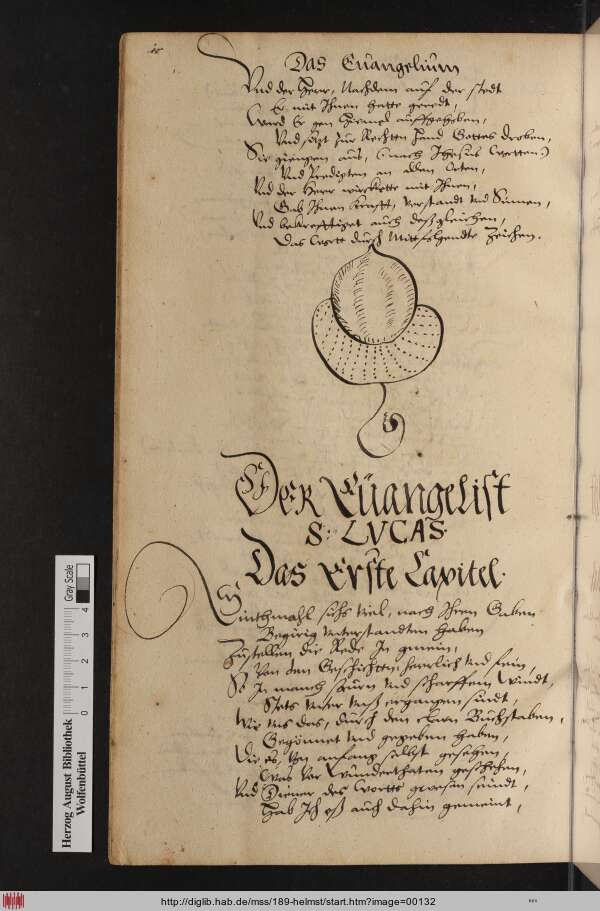 Das Euangelium
Vnd der Herr, Nachdem auf der stedt
Er mit Ihnen hatte geredt,
Ward Er gen Himmel auffgehoben,
Vnd sitzt zur Rechten Hand Gottes droben,
Sie giengen aus, (nach Jhesus Wortten)
Vnd Predigten an allen Orten,
Vnd der Herr wirckette mit Ihnen,
Gab Ihnen Krafft, Verstandt vnd Sinnen,
Vnd bekrefftiget auch deßgleichen,
Das Wortt durch Mittfolgendte Zeichen.
DER Euangelist
S: LVCAS.
Das Erste Capitel.
Sinthmahl sichs viel, nach Ihren Gaben
Begirig vnterstandten haben
Zustellen die Rede In gmein,
Von den Geschichten, herrlich vnd fein,
So In
Stets vnter vnß ergangen sindt,
Wie vns das, durch den Buchstaben,
Gegönnet vnd gegeben haben,
Die es, von anfang selbst gesehen,
Was vor Wunderthaten geschehen,
Vnd Diener des Wortts gewesen seindt,
Hab Ich eß auch dahin gemeint,
Herzog August Bibliothek
Wolfenbüttel
0 1 2 3 4
Gray Scale
http://diglib.hab.de/mss/189-helmst/start.htm?image=00132